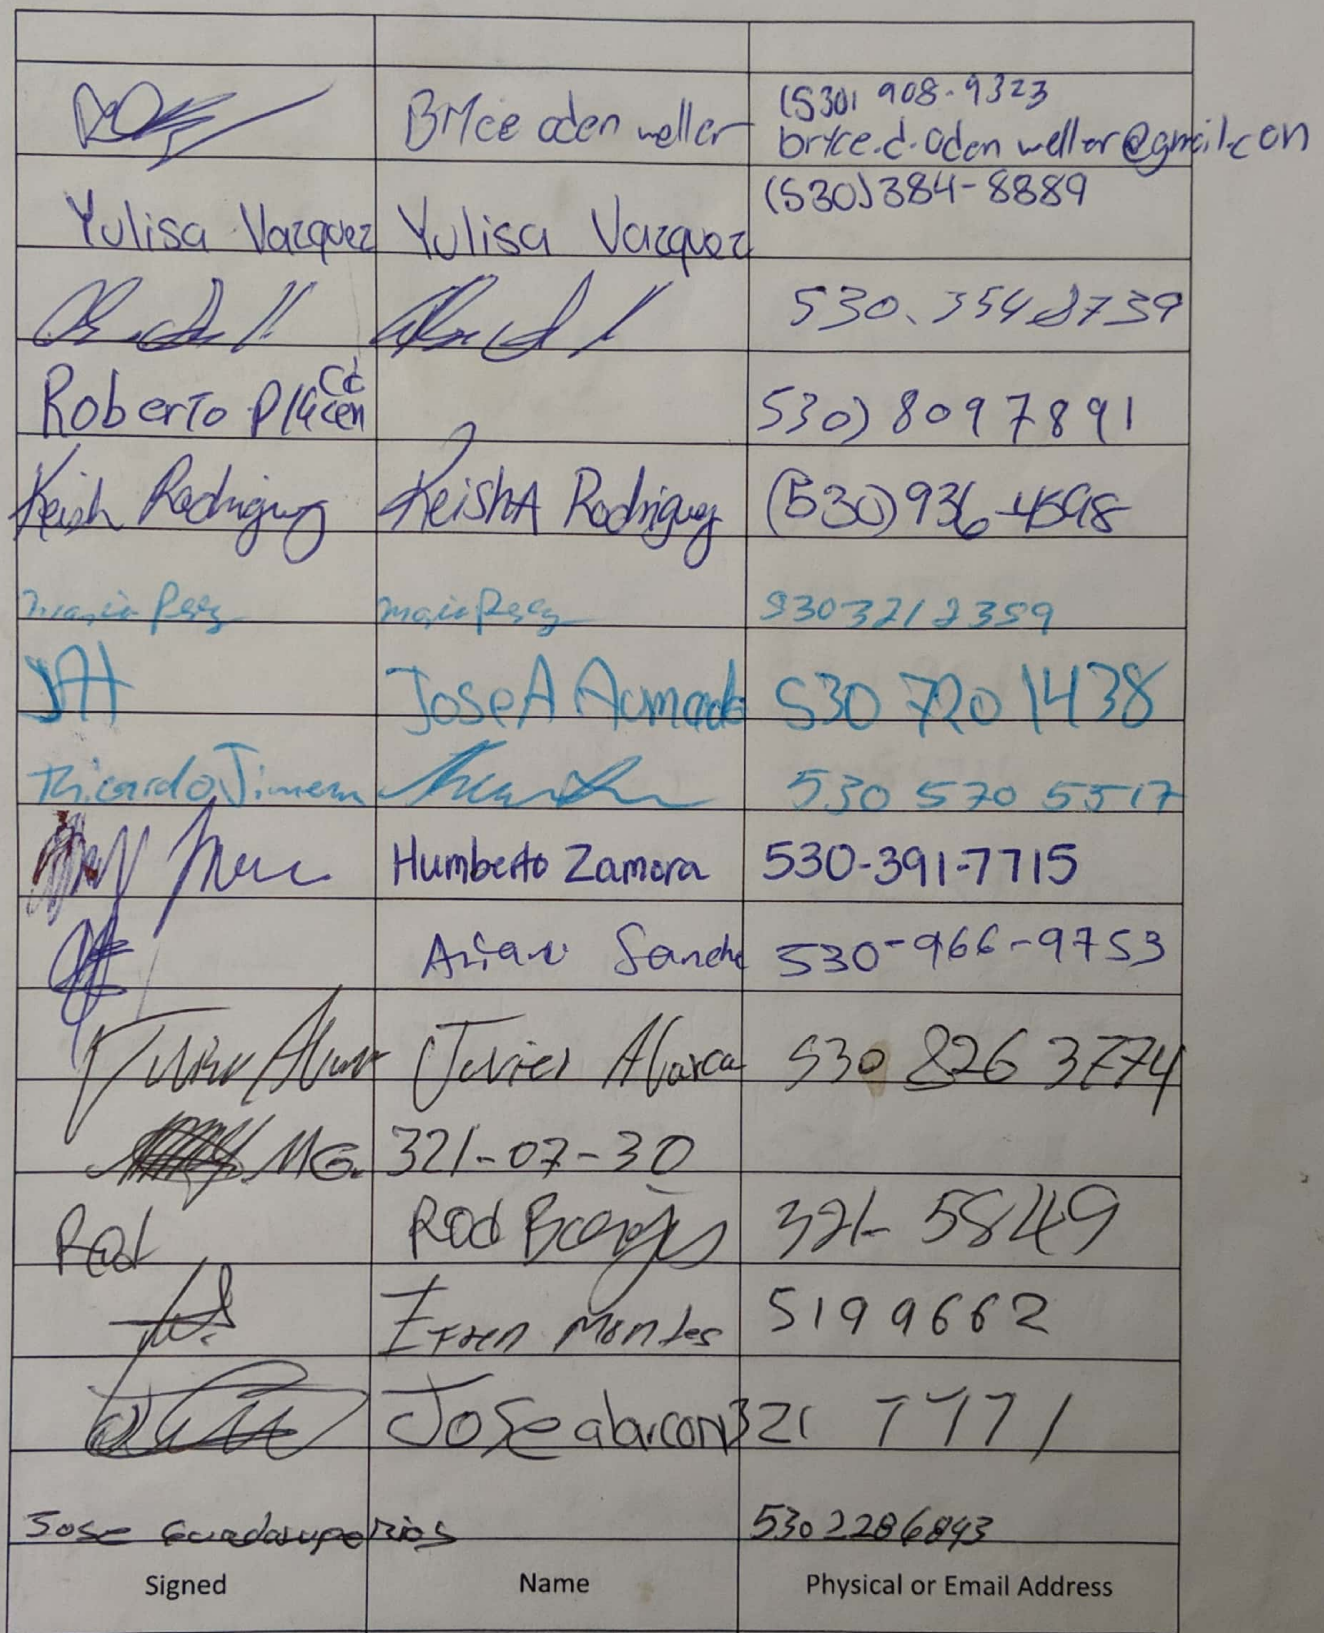 Bryce oden weller (530) 908-9323
bryce.d.oden weller@gmail.con
Yulisa Vazquez Yulisa Vazquez (530)384-8889
530.354 8739
Roberto Placencia 530) 809 7891
Keish Rodriguez KeishA Rodriguez (530)936-4598
maria Perez maria Perez 530 321 2359
JAA Jose A 530 720 1438
Ricardo Jimenez 530 570 5517
Humberto Zamora 530-391-7715
Sanche 530-966-9753
Javier Abarca 530 826 3774
MG. 321-07-30
Rod Rod 321-5849
Efren Montes 519 9662
Jose alarcon 321 7771
Jose Guadalupe Rios 530 2286843
Signed Name Physical or Email Address